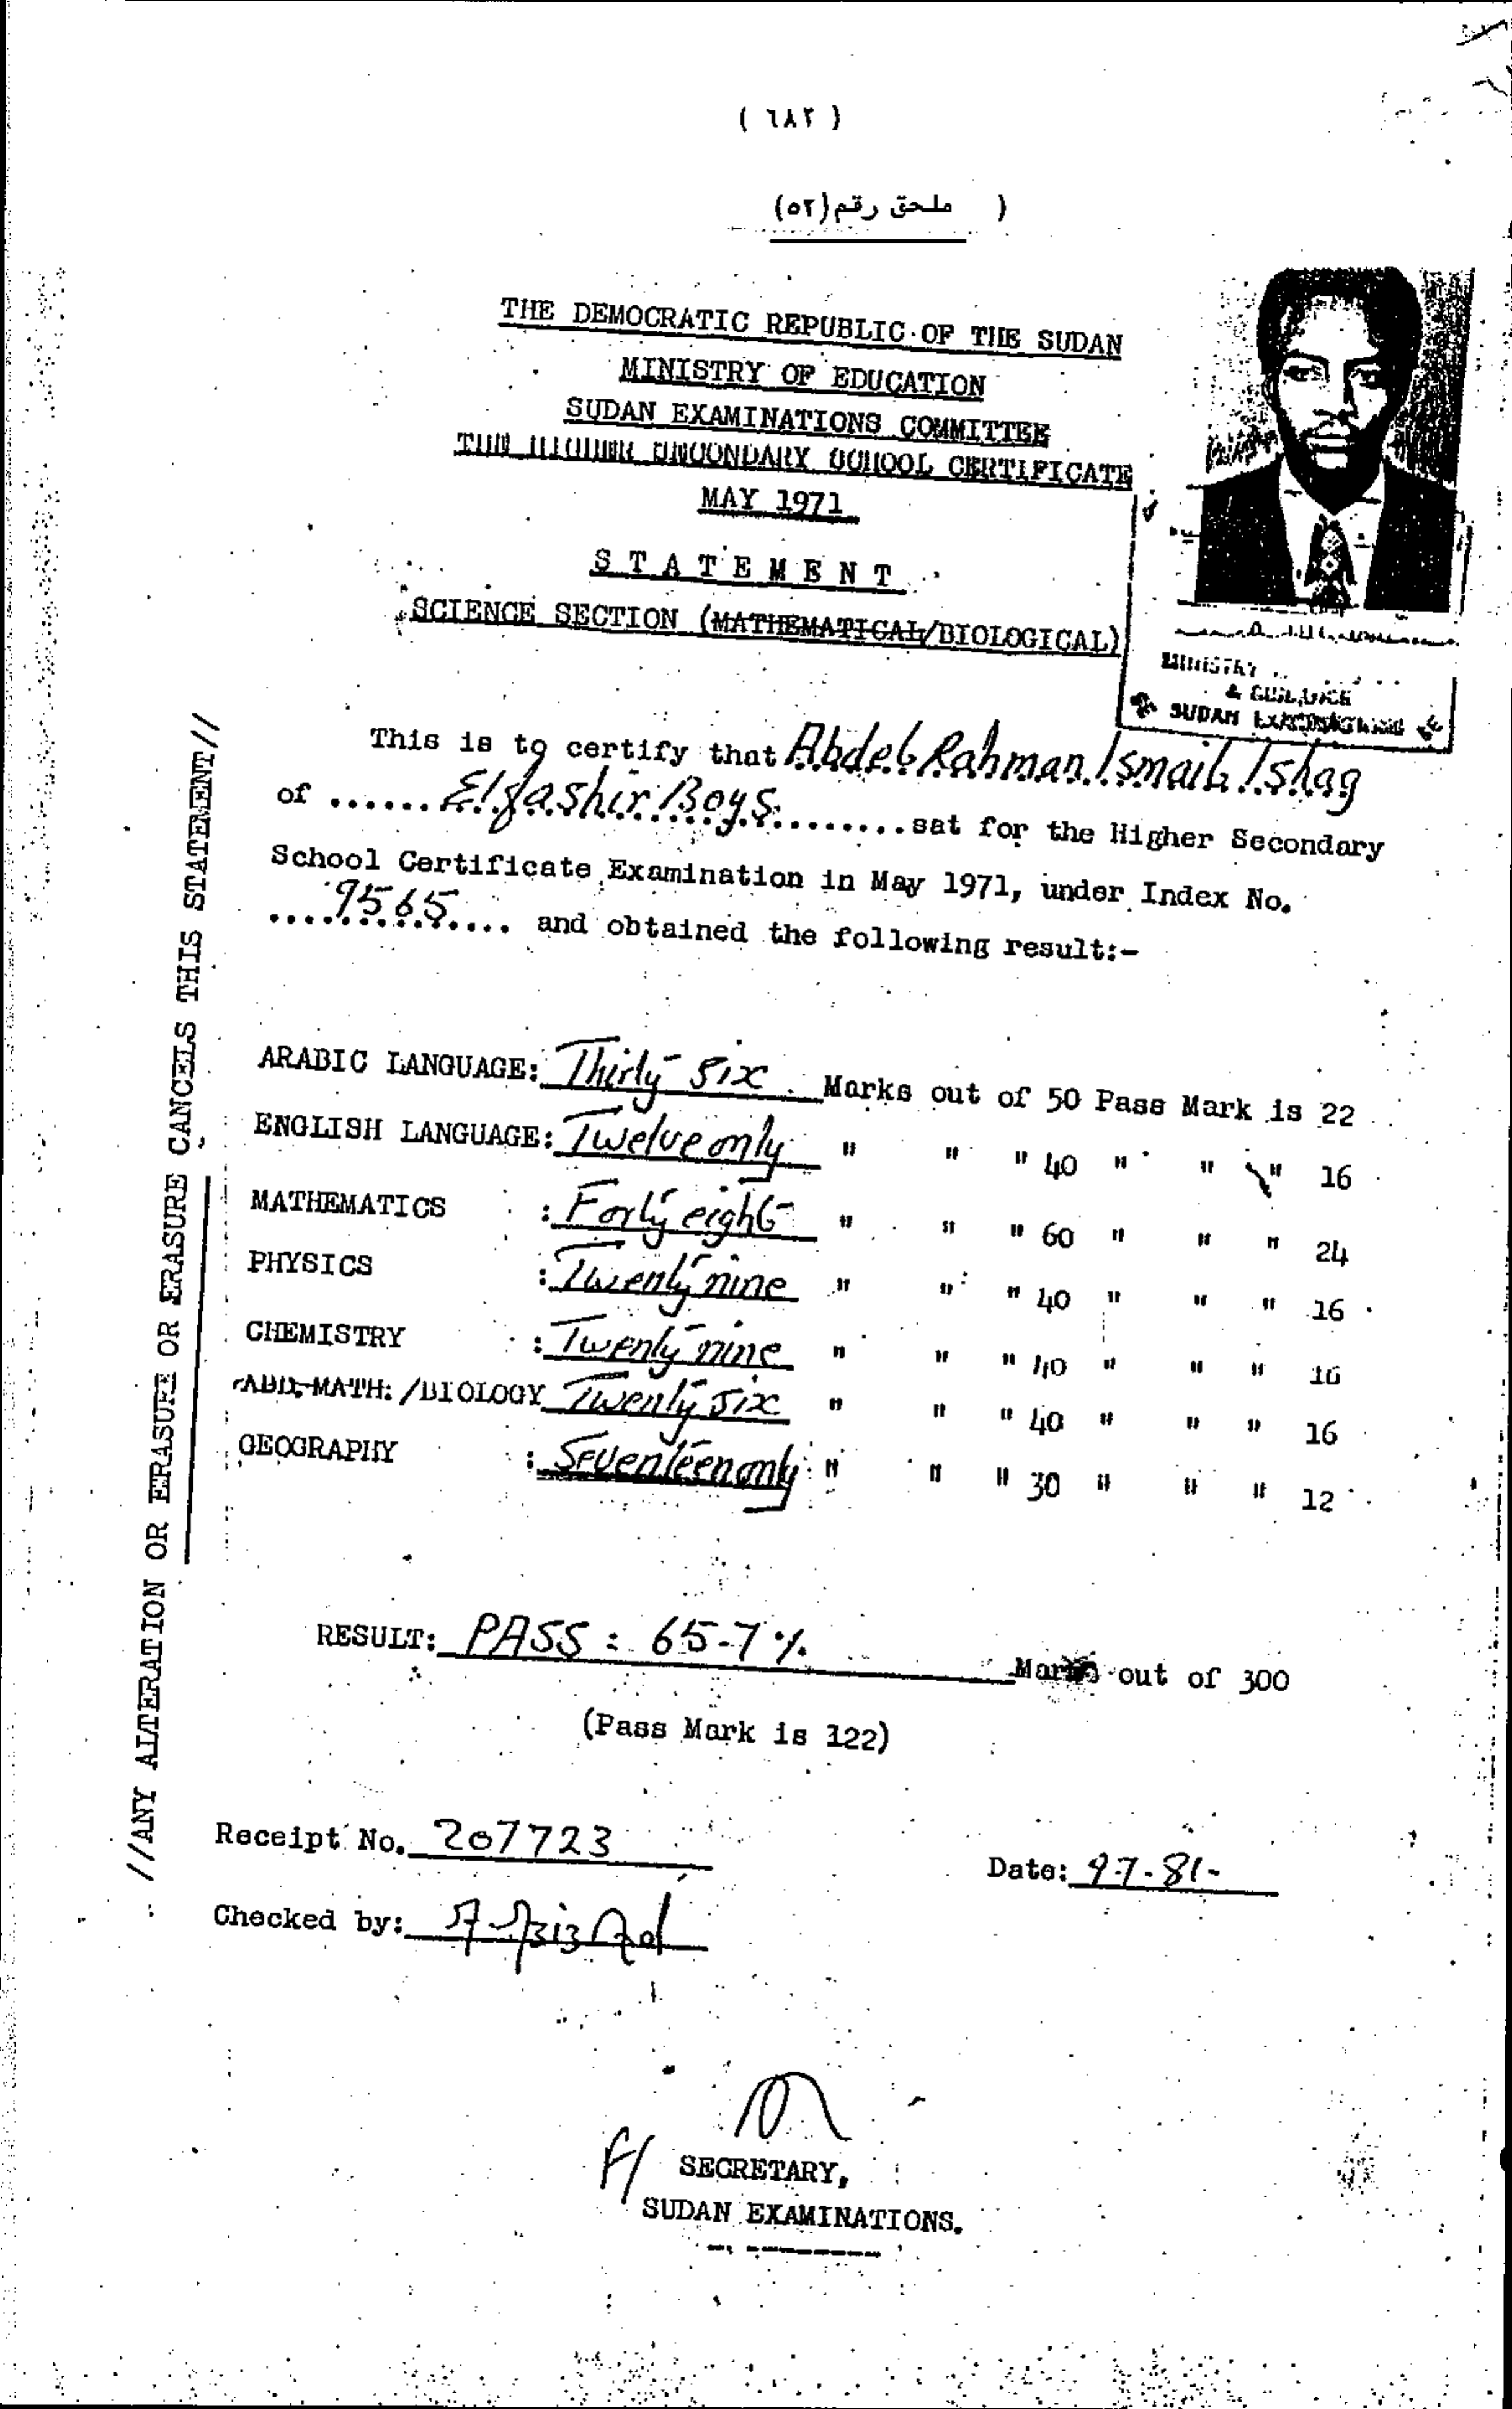 ( ٦٨٢ )
( ملحق رقم(٥٢)
THE DEMOCRATIC REPUBLIC OF THE SUDAN
MINISTRY OF EDUCATION
SUDAN EXAMINATIONS COMMITTEE
THE HIGHER SECONDARY SCHOOL CERTIFICATE
MAY 1971
S T A T E M E N T
SCIENCE SECTION (MATHEMATICAL/BIOLOGICAL)
MINISTRY
& GUIDANCE
SUDAN EXAMINATIONS
This is to certify that Abdel Rahman Ismail Ishag
of ...... Elfashir Boys ........ sat for the Higher Secondary
School Certificate Examination in May 1971, under Index No.
.... 9565 .... and obtained the following result:-
ARABIC LANGUAGE: Thirty six Marks out of 50 Pass Mark is 22
ENGLISH LANGUAGE: Twelve only " " " 40 " " " 16
MATHEMATICS : Forty eight " " " 60 " " " 24
PHYSICS : Twenty nine " " " 40 " " " 16
CHEMISTRY : Twenty nine " " " 40 " " " 16
ADD-MATH:/BIOLOGY Twenty six " " " 40 " " " 16
GEOGRAPHY : Seventeen only " " " 30 " " " 12
RESULT: PASS : 65-7 % Marks out of 300
(Pass Mark is 122)
Receipt No. 207723
Date: 9-7-81-
Checked by:
SECRETARY,
SUDAN EXAMINATIONS.
//ANY ALTERATION OR ERASURE OR ERASURE CANCELS THIS STATEMENT//